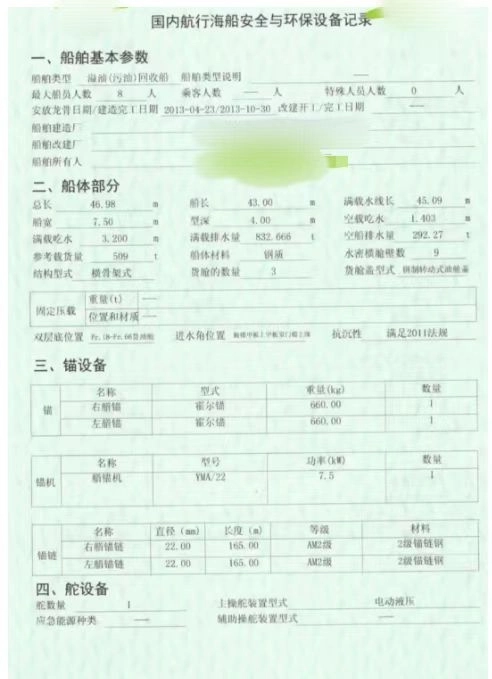 国内航行海船安全与环保设备记录
一、船舶基本参数
船舶类型 溢油(污油)回收船 船舶类型说明 —
最大船员人数 8 人 乘客人数 — 人 特殊人员人数 0 人
安放龙骨日期/建造完工日期 2013-04-23/2013-10-30 改建开工/完工日期 —
船舶建造厂
船舶改建厂
船舶所有人
二、船体部分
总长 46.98 m 船长 43.00 m 满载水线长 45.09 m
船宽 7.50 m 型深 4.00 m 空载吃水 1.403 m
满载吃水 3.200 m 满载排水量 832.666 t 空船排水量 292.27 t
参考载货量 509 t 船体材料 钢质 水密横舱壁数 9
结构型式 横骨架式 货舱的数量 3 货舱盖型式 钢制转动式油舱盖
固定压载 重量(t) —
位置和材质 —
双层底位置 Fr.18-Fr.66货油舱 进水角位置 抗沉性 满足2011法规
三、锚设备
锚 名称 型式 重量(kg) 数量
右艏锚 霍尔锚 660.00 1
左艏锚 霍尔锚 660.00 1
锚机 名称 型号 功率(kW) 数量
艏锚机 YMA/22 7.5 1
锚链 名称 直径(mm) 长度(m) 等级 材料
右艏锚链 22.00 165.00 AM2级 2级锚链钢
左艏锚链 22.00 165.00 AM2级 2级锚链钢
四、舵设备
舵数量 1 主操舵装置型式 电动液压
应急能源种类 — 辅助操舵装置型式 —